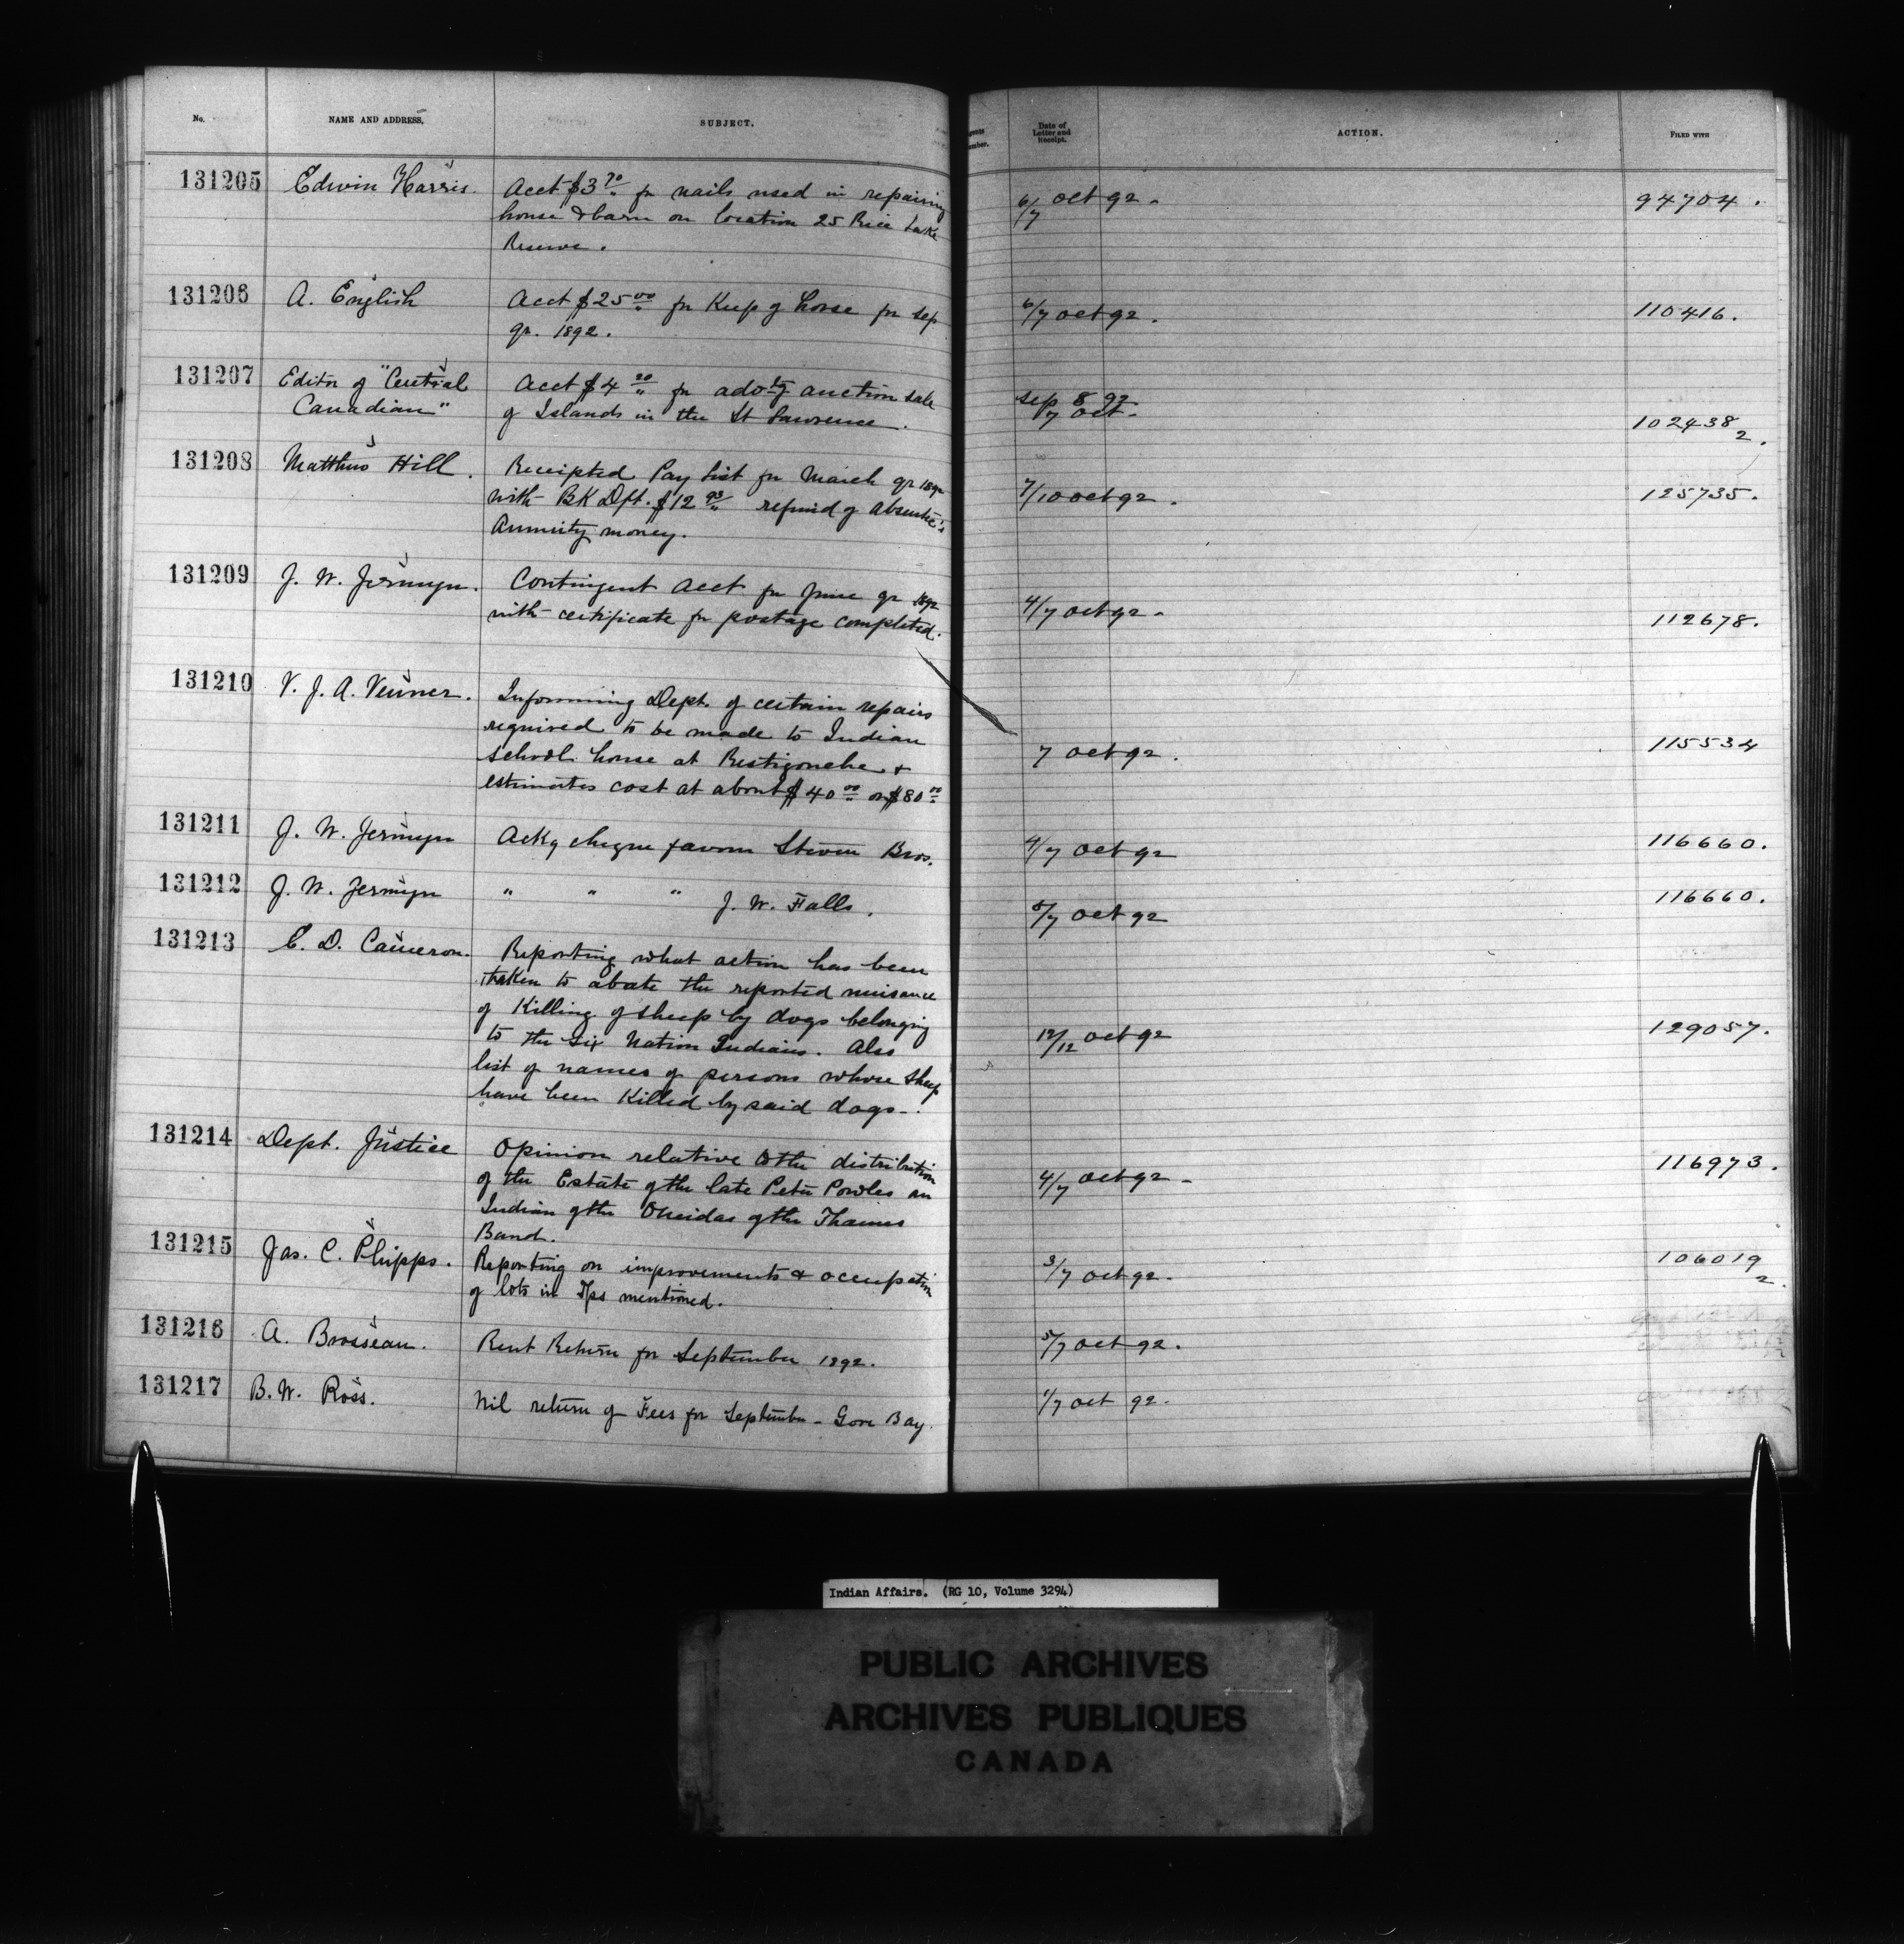 No. NAME AND ADDRESS. SUBJECT. Date of Letter and Receipt. ACTION. FILED WITH
131205 Edwin Harris. Acct $3 70 for nails used in repairing 6/7 Oct 92. 94704.
house & barn on location 25 Rice Lake
Reserve.
131206 A. English Acct $25 00 for Keep of horse for Sep 6/7 Oct 92. 110416.
qr. 1892.
131207 Editor of "Central Acct $4 20 for advtg auction sale Sep 8 92
Canadian" of Islands in the St Lawrence. 7 Oct. 102438 2.
131208 Matthew Hill. Receipted Pay List for March qr 1892 7/10 Oct 92. 125735.
with BK Dft. $12 93 refund of absentee's
Annuity money.
131209 J. W. Jermyn. Contingent Acct for June qr 1892 4/7 Oct 92. 112678.
with certificate for postage completed.
131210 V. J. A. Venner. Informing Dept. of certain repairs
required to be made to Indian
School house at Restigouche & 7 Oct 92. 115534
estimates cost at about $40 00 or $80 00
131211 J. W. Jermyn Ackg cheque favour Steven Bros. 4/7 Oct 92 116660.
131212 J. W. Jermyn " " " J. W. Falls. 5/7 Oct 92 116660.
131213 E. D. Cameron. Reporting what action has been
taken to abate the reported nuisance
of Killing of sheep by dogs belonging
to the Six Nation Indians. Also 12/12 Oct 92 129057.
list of names of persons whose sheep
have been Killed by said dogs.
131214 Dept. Justice Opinion relative to the distribution 4/7 Oct 92. 116973.
of the Estate of the late Peter Powles an
Indian of the Oneidas of the Thames
Band.
131215 Jas. C. Phipps. Reporting on improvements & occupation 3/7 Oct 92. 106019 2.
of lots in Tps mentioned.
131216 A. Brosseau. Rent Return for September 1892. 5/7 Oct 92.
131217 B. W. Ross. Nil return of Fees for September - Gore Bay. 1/7 Oct 92.
Indian Affairs. (RG 10, Volume 3294)
PUBLIC ARCHIVES
ARCHIVES PUBLIQUES
CANADA